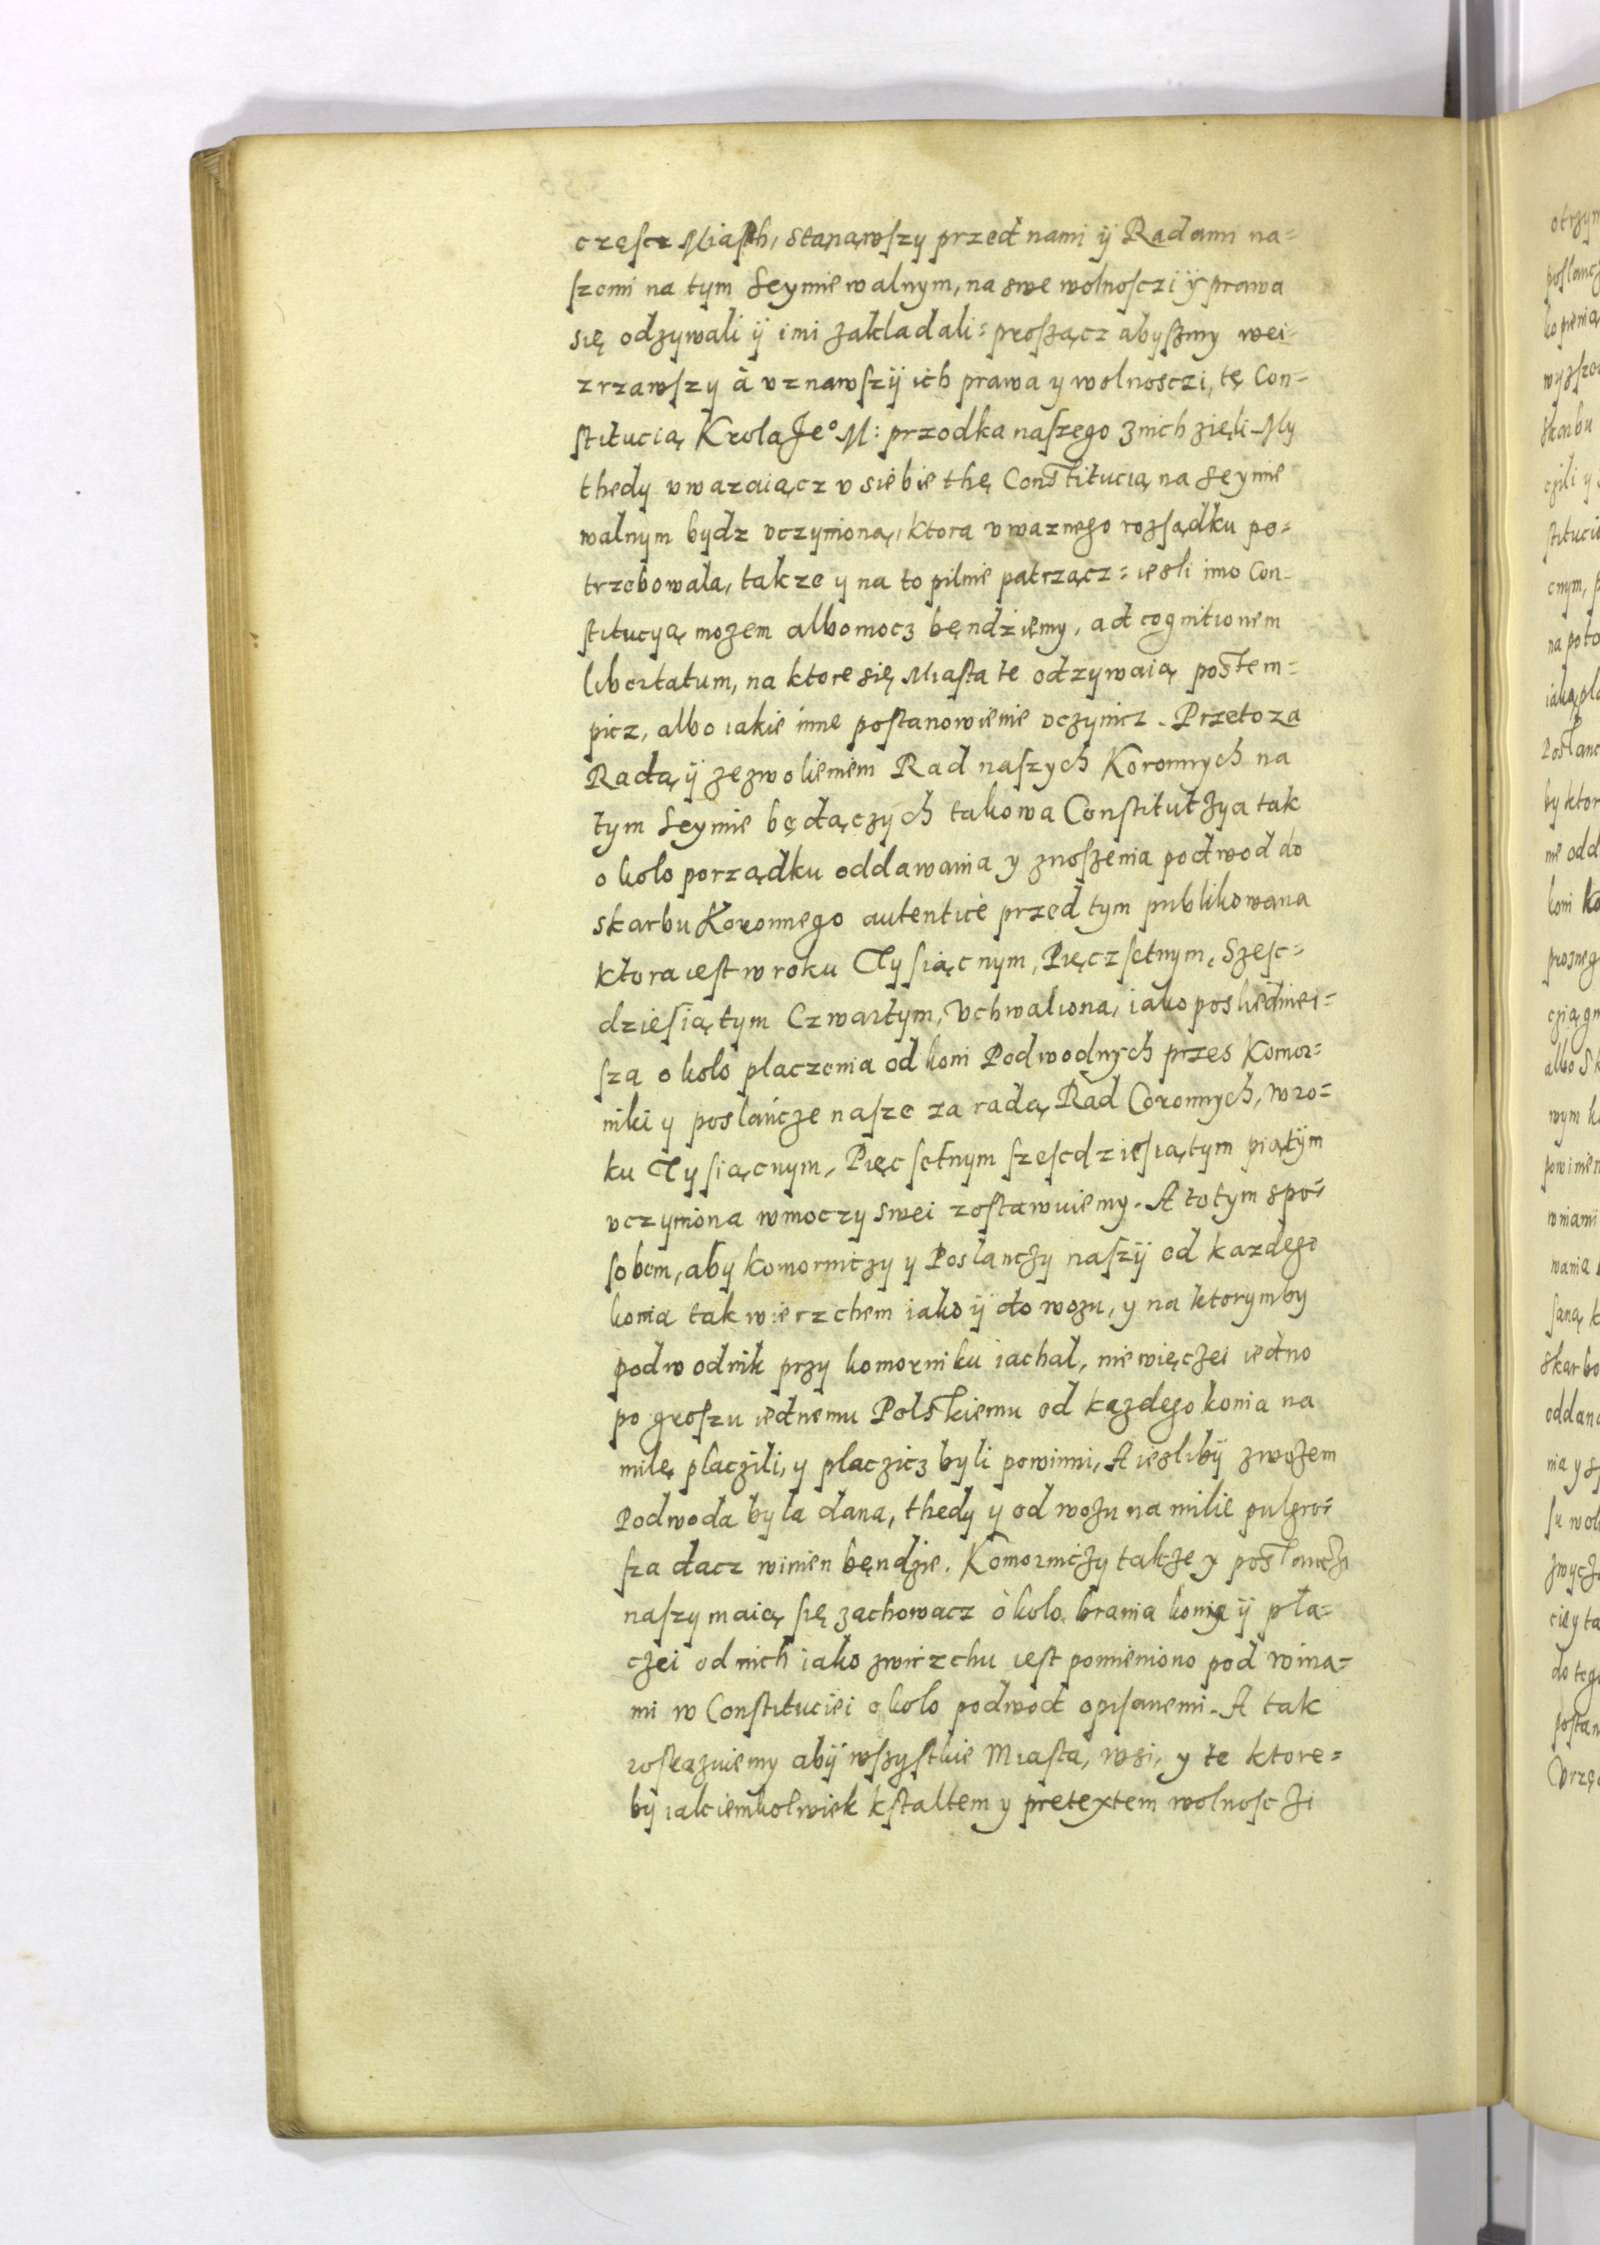 częscz Miasth, stanąwszy przed nami ÿ Radami na=
szemi na tym Seymie walnym, na swe wolnosczi ÿ prawa
się odzywali ÿ imi zakladali: proszącz abyszmy wei-
zrzawszy à vznawszÿ ich prawa y wolnosczi, tę Con-
stitucią Krola Je° M: przodka naszego z nich zięli - My
thedy vwazaiącz v siebie thę Constitucią na Seymie
walnym bydz vczynioną, ktora vwaznego rozsądku po=
trzebowala, takze y na to pilnie patrzącz: iesli imo Con-
stitucyą mozem albo mocz będziemy, ad cognitionem
libertatum, na ktore się Miasta te odzywaią postem=
picz, albo iakie inne postanowienie vczynicz. Przeto za
Radą ÿ zezwoleniem Rad naszych Koronnych na
tym Seymie będączych takowa Constitutzya tak
okolo porządku oddawania y znoszenia podwod do
skarbu Koronnego autentice przed tym publikowana
ktora iest w roku Tysiącnym, Pięczsetnym, Szesc=
dziesiątym Czwartym, Vchwaliona, iako posliedniei=
sza okolo placzenia od koni Podwodnych przes Komor=
niki y poslańcze nasze za radą Rad Coronnych, w ro=
ku Tysiącnym, Pięcsetnym szescdziesiątym piątÿm
vczyniona w moczy swei zostawuiemy. A to tym spo=
sobem, aby komorniczy y Poslanczy naszÿ od kazdego
konia tak wierzchem iako ÿ do wozu, y na ktorymby
podwodnik przy komorniku iachal, nie więczei iedno
po groszu iednemu Polskiemu od kazdego konia na
milę placzili, y placzicz byli powinni, A iesliby z wozem
Podwoda byla dana, thedy y od wozu na milie pulgro=
sza dacz winien będzie. Komorniczy takze y poslanczy
naszy maią się zachowacz òkolo brania konia ÿ pła=
czei od nich iako zwirzchu iest pomieniono pod wina=
mi w Constituciei okolo podwod opisanemi. A tak
roskazuiemy abÿ wszystkie Miasta, wsi, y te ktore=
bÿ iakiemkolwiek kstaltem y pretextem wolnosczi